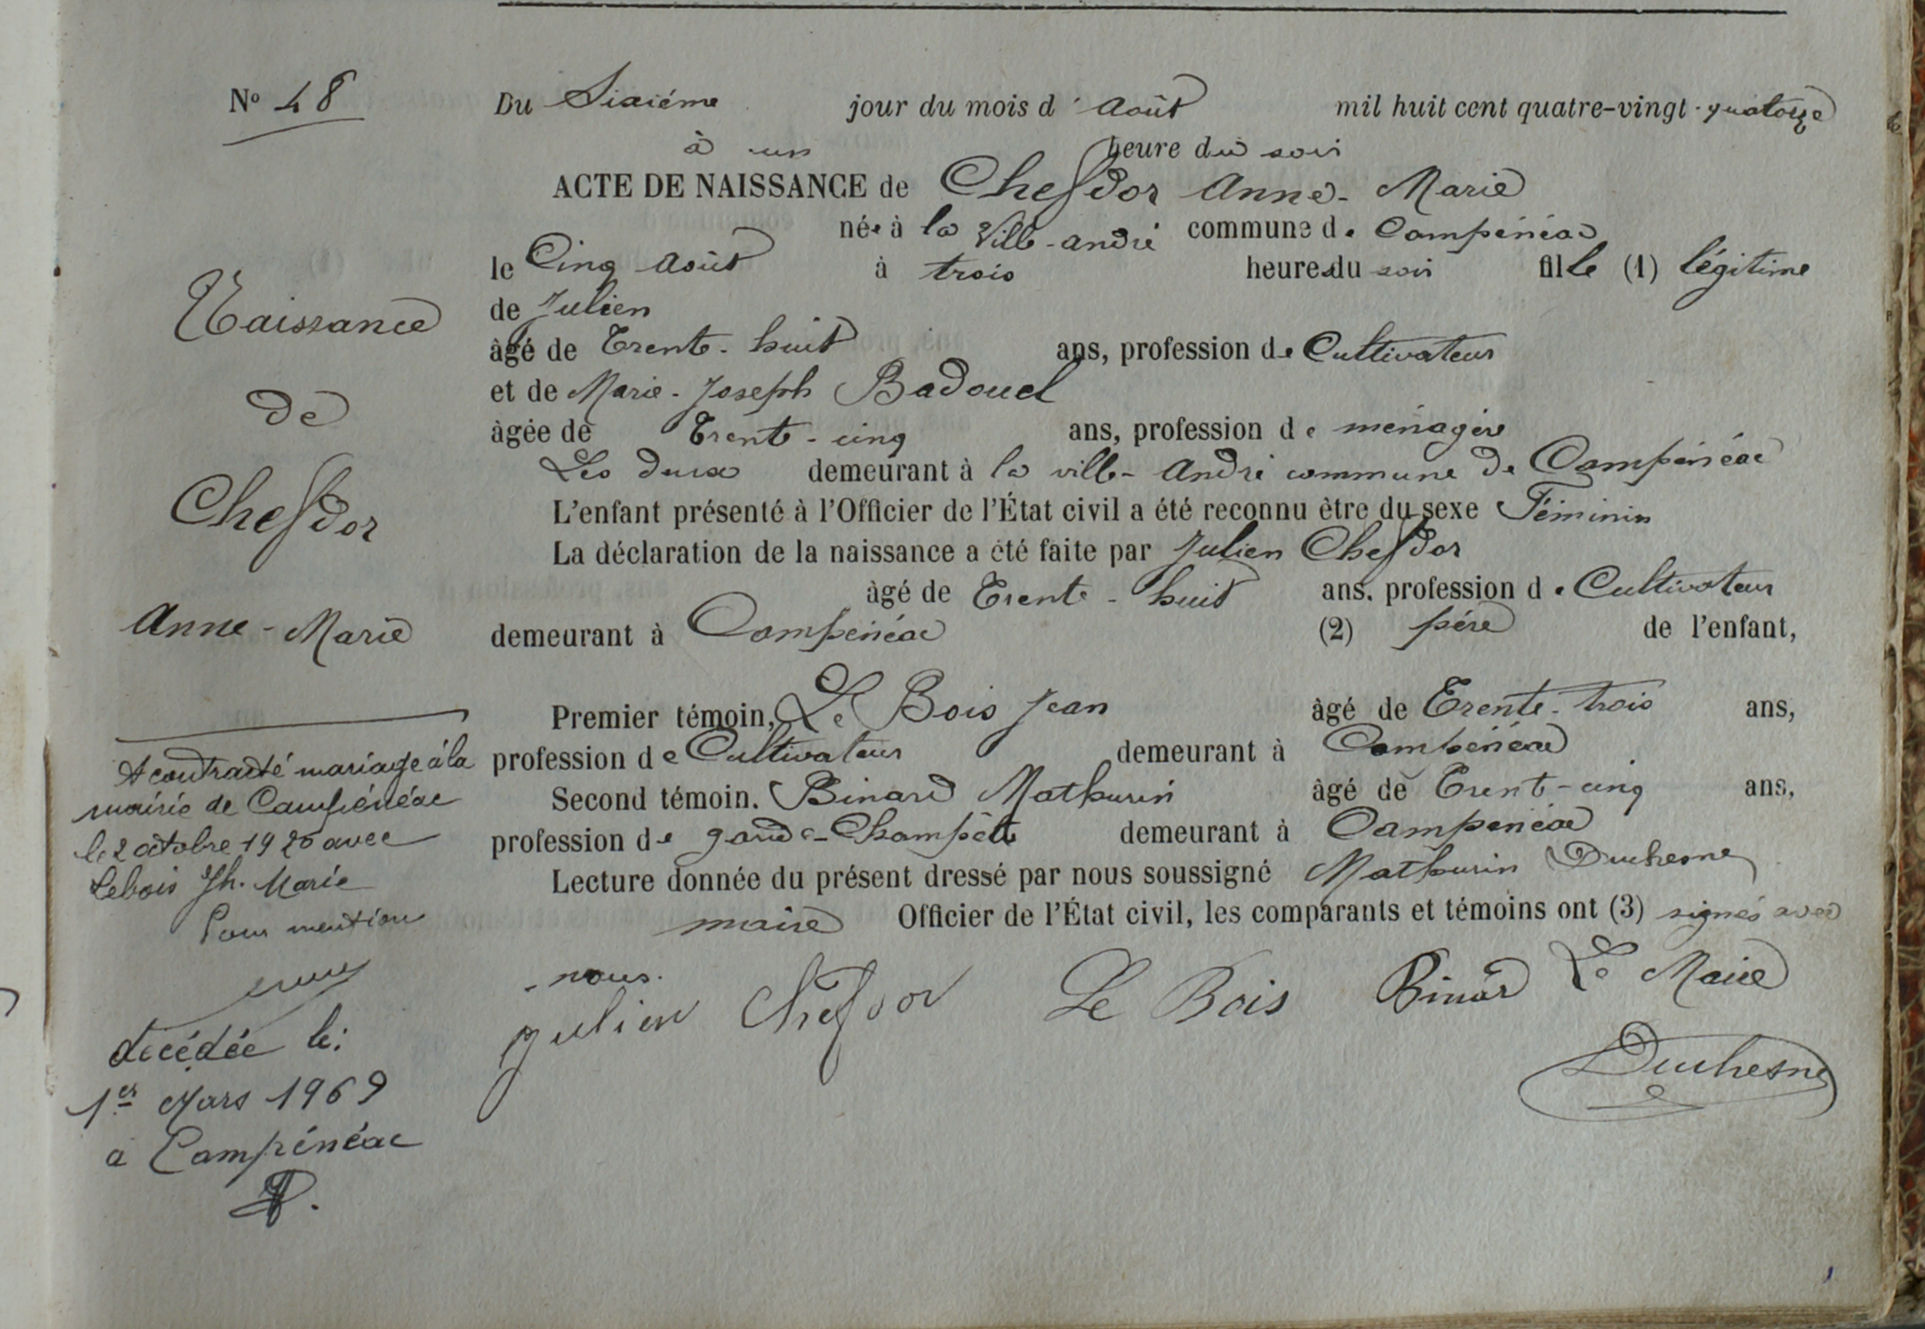 No 48
Du Sixiéme jour du mois d'Août mil huit cent quatre-vingt-quatorze
à un heure du soir
ACTE DE NAISSANCE de Chefdor Anne-Marie
née à la Ville-andré commune de Campénéac
le Cinq Août à trois heures du soir fille (1) légitime
de Julien
âgé de Trente-huit ans, profession de Cultivateur
et de Marie-Joseph Badouel
âgée de Trente-cinq ans, profession de ménagère
Les deux demeurant à la ville-André commune de Campénéac
L'enfant présenté à l'Officier de l'État civil a été reconnu être du sexe Féminin
La déclaration de la naissance a été faite par Julien Chefdor
âgé de Trente-huit ans, profession de Cultivateur
demeurant à Campénéac (2) père de l'enfant,
Premier témoin, Le Bois Jean âgé de Trente-trois ans,
profession de Cultivateur demeurant à Campénéac
Second témoin. Binard Mathurin âgé de Trente-cinq ans,
profession de garde-Champêtre demeurant à Campénéac
Lecture donnée du présent dressé par nous soussigné Mathurin Duchesne
maire Officier de l'État civil, les comparants et témoins ont (3) signés avec
nous.
Julien Chefdor Le Bois Binard Le Maire
Duchesne
Naissance
de
Chefdor
Anne-Marie
A contracté mariage à la
mairie de Campénéac
le 2 octobre 1920 avec
Lebois Jh. Marie
Pour mention
décédée le:
1er Mars 1969
à Campénéac